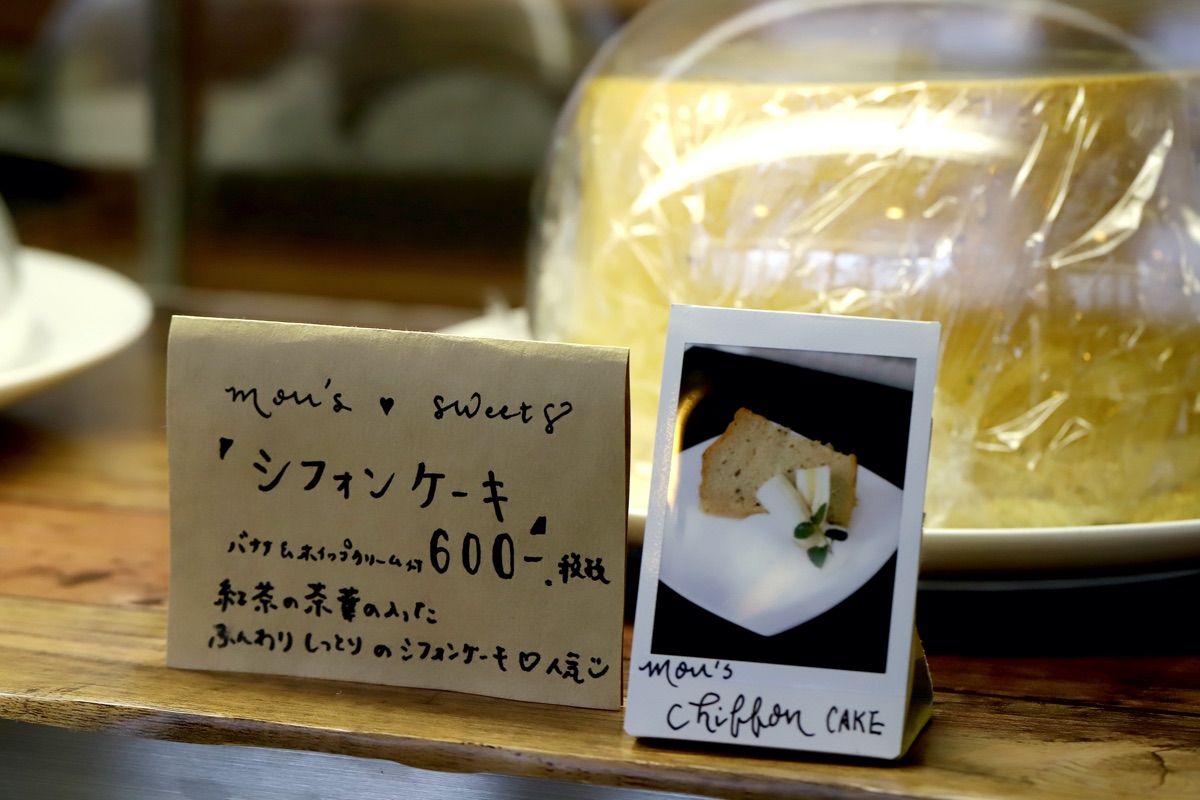 mou's ♥ sweets♡
「シフォンケーキ」
バナナ&ホイップクリーム付 600-. 税抜
紅茶の茶葉の入った
ふんわりしっとりのシフォンケーキ♡人気
mou's
chiffon CAKE